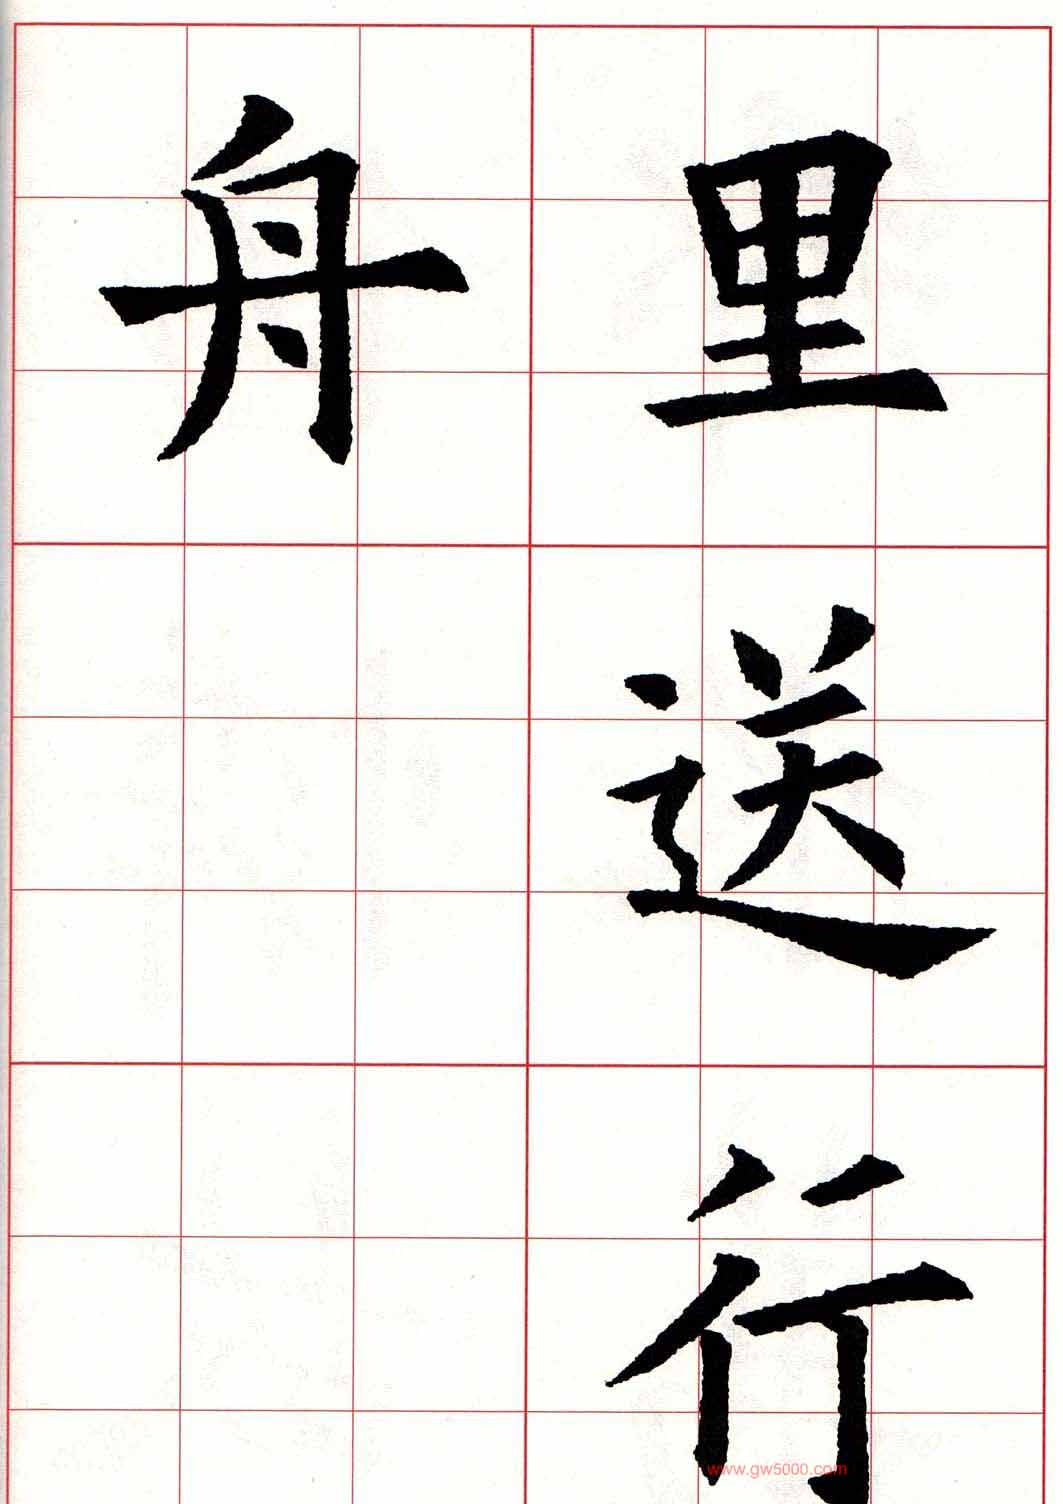 里送行
舟
www.gw5000.com